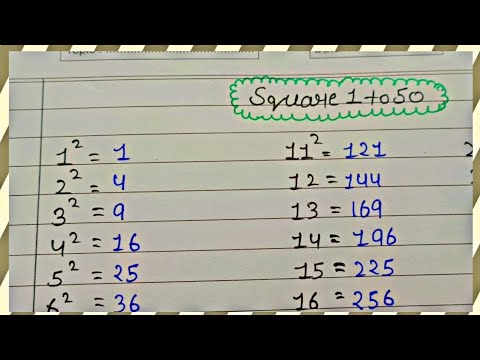 Square 1 to 50
1² = 1
2² = 4
3² = 9
4² = 16
5² = 25
6² = 36
11² = 121
12 = 144
13 = 169
14 = 196
15 = 225
16 = 256